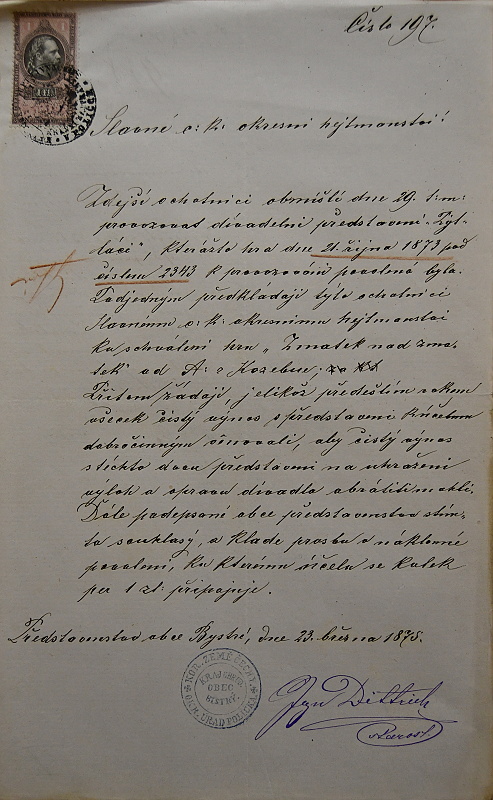 Číslo 197.
Slavné c: k: okresní hejtmanství!
Zdejší ochotníci obmíští dne 29. t: m:
provozovat divadelní představení „Žyt-
kláci“, kterážto hra dne 21. října 1873 pod
číslem 2343 k provozování povolená byla.
Zadjedným předkládají tyto ochotníci
Slavnému c: k: okresnímu hejtmanství
ku schválení hru „Zmatek nad zma-
tek“ od A: z Kozebue;
Přitom žádají, jelikož předešlím rokem
všecek čistý výnos z představení k účelům
dobročinným věnovali, aby čistý výnos
z těchto dvou představení na uhražení
výloh a opravu divadla obrátiti mohli.
Dále podepsané obce představenstvo stím-
to souhlasý, a klade prosbu o náklonné
povolení, ku kterému účelu se kolek
per 1 zl: připojuje.
Představenstvo obce Bystré, dne 23. března 1875.
KOR. ZEMĚ ČESKÝ
OBEC
BISTRÝ
OKR. ÚŘAD POLICKÁ
Jgn Dittrich
starost